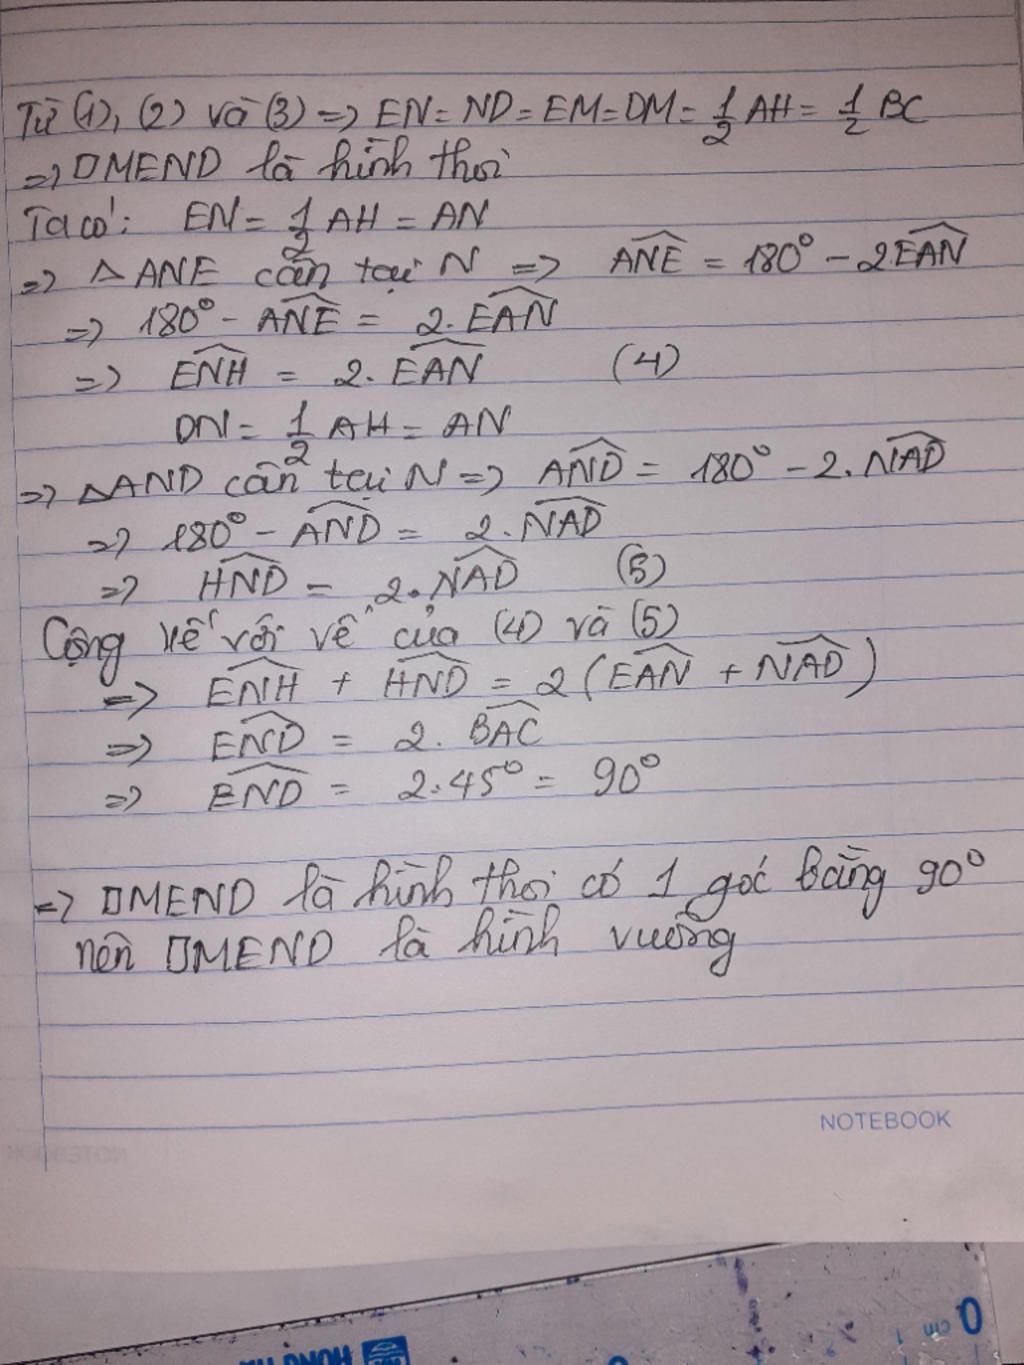 Từ (1), (2) và (3) => EN = ND = EM = DM = 1/2 AH = 1/2 BC
=> □MEND là hình thoi
Ta có: EN = 1/2 AH = AN
=> △ANE cân tại N => \widehat{ANE} = 180° - 2\widehat{EAN}
=> 180° - \widehat{ANE} = 2.\widehat{EAN}
=> \widehat{ENH} = 2.\widehat{EAN} (4)
DN = 1/2 AH = AN
=> △AND cân tại N => \widehat{AND} = 180° - 2.\widehat{NAD}
=> 180° - \widehat{AND} = 2.\widehat{NAD}
=> \widehat{HND} = 2.\widehat{NAD} (5)
Cộng vế với vế của (4) và (5)
=> \widehat{ENH} + \widehat{HND} = 2(\widehat{EAN} + \widehat{NAD})
=> \widehat{END} = 2.\widehat{BAC}
=> \widehat{END} = 2.45° = 90°
=> □MEND là hình thoi có 1 góc bằng 90°
nên □MEND là hình vuông
NOTEBOOK
0
cm 1